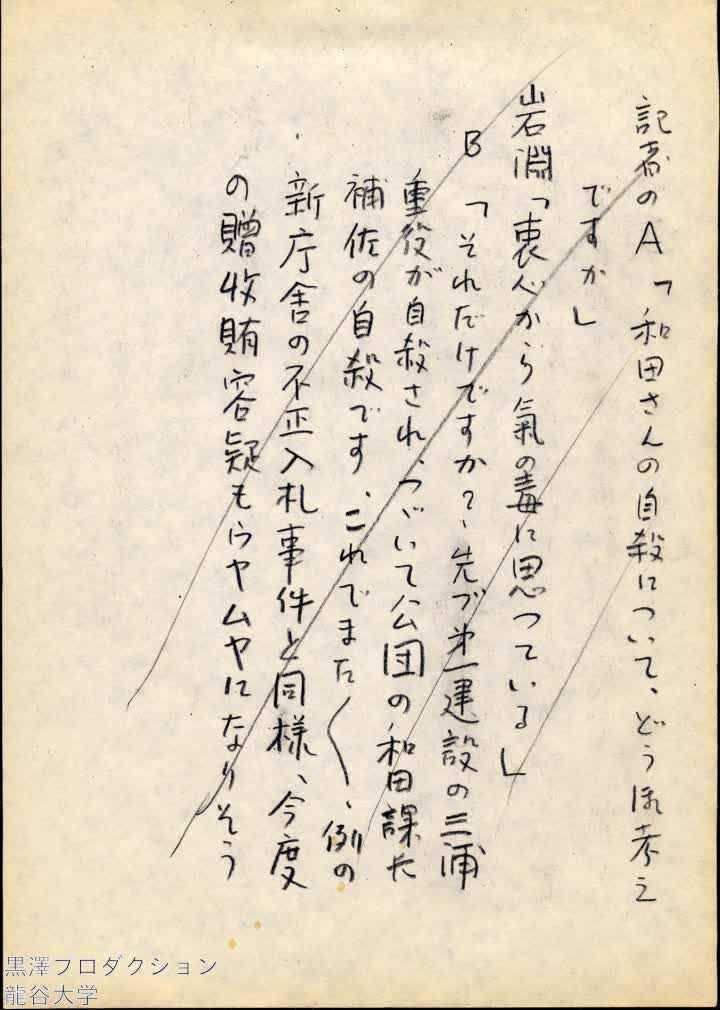 記者のA「和田さんの自殺について、どうお考え
ですか」
岩淵「衷心から氣の毒に思つている」
B「それだけですか？、先づ第一建設の三浦
重役が自殺され、つゞいて公団の和田課長
補佐の自殺です、これでまた〱、例の
新庁舎の不正入札事件と同様、今度
の贈收賄容疑もウヤムヤになりそう
黒澤プロダクション
龍谷大学